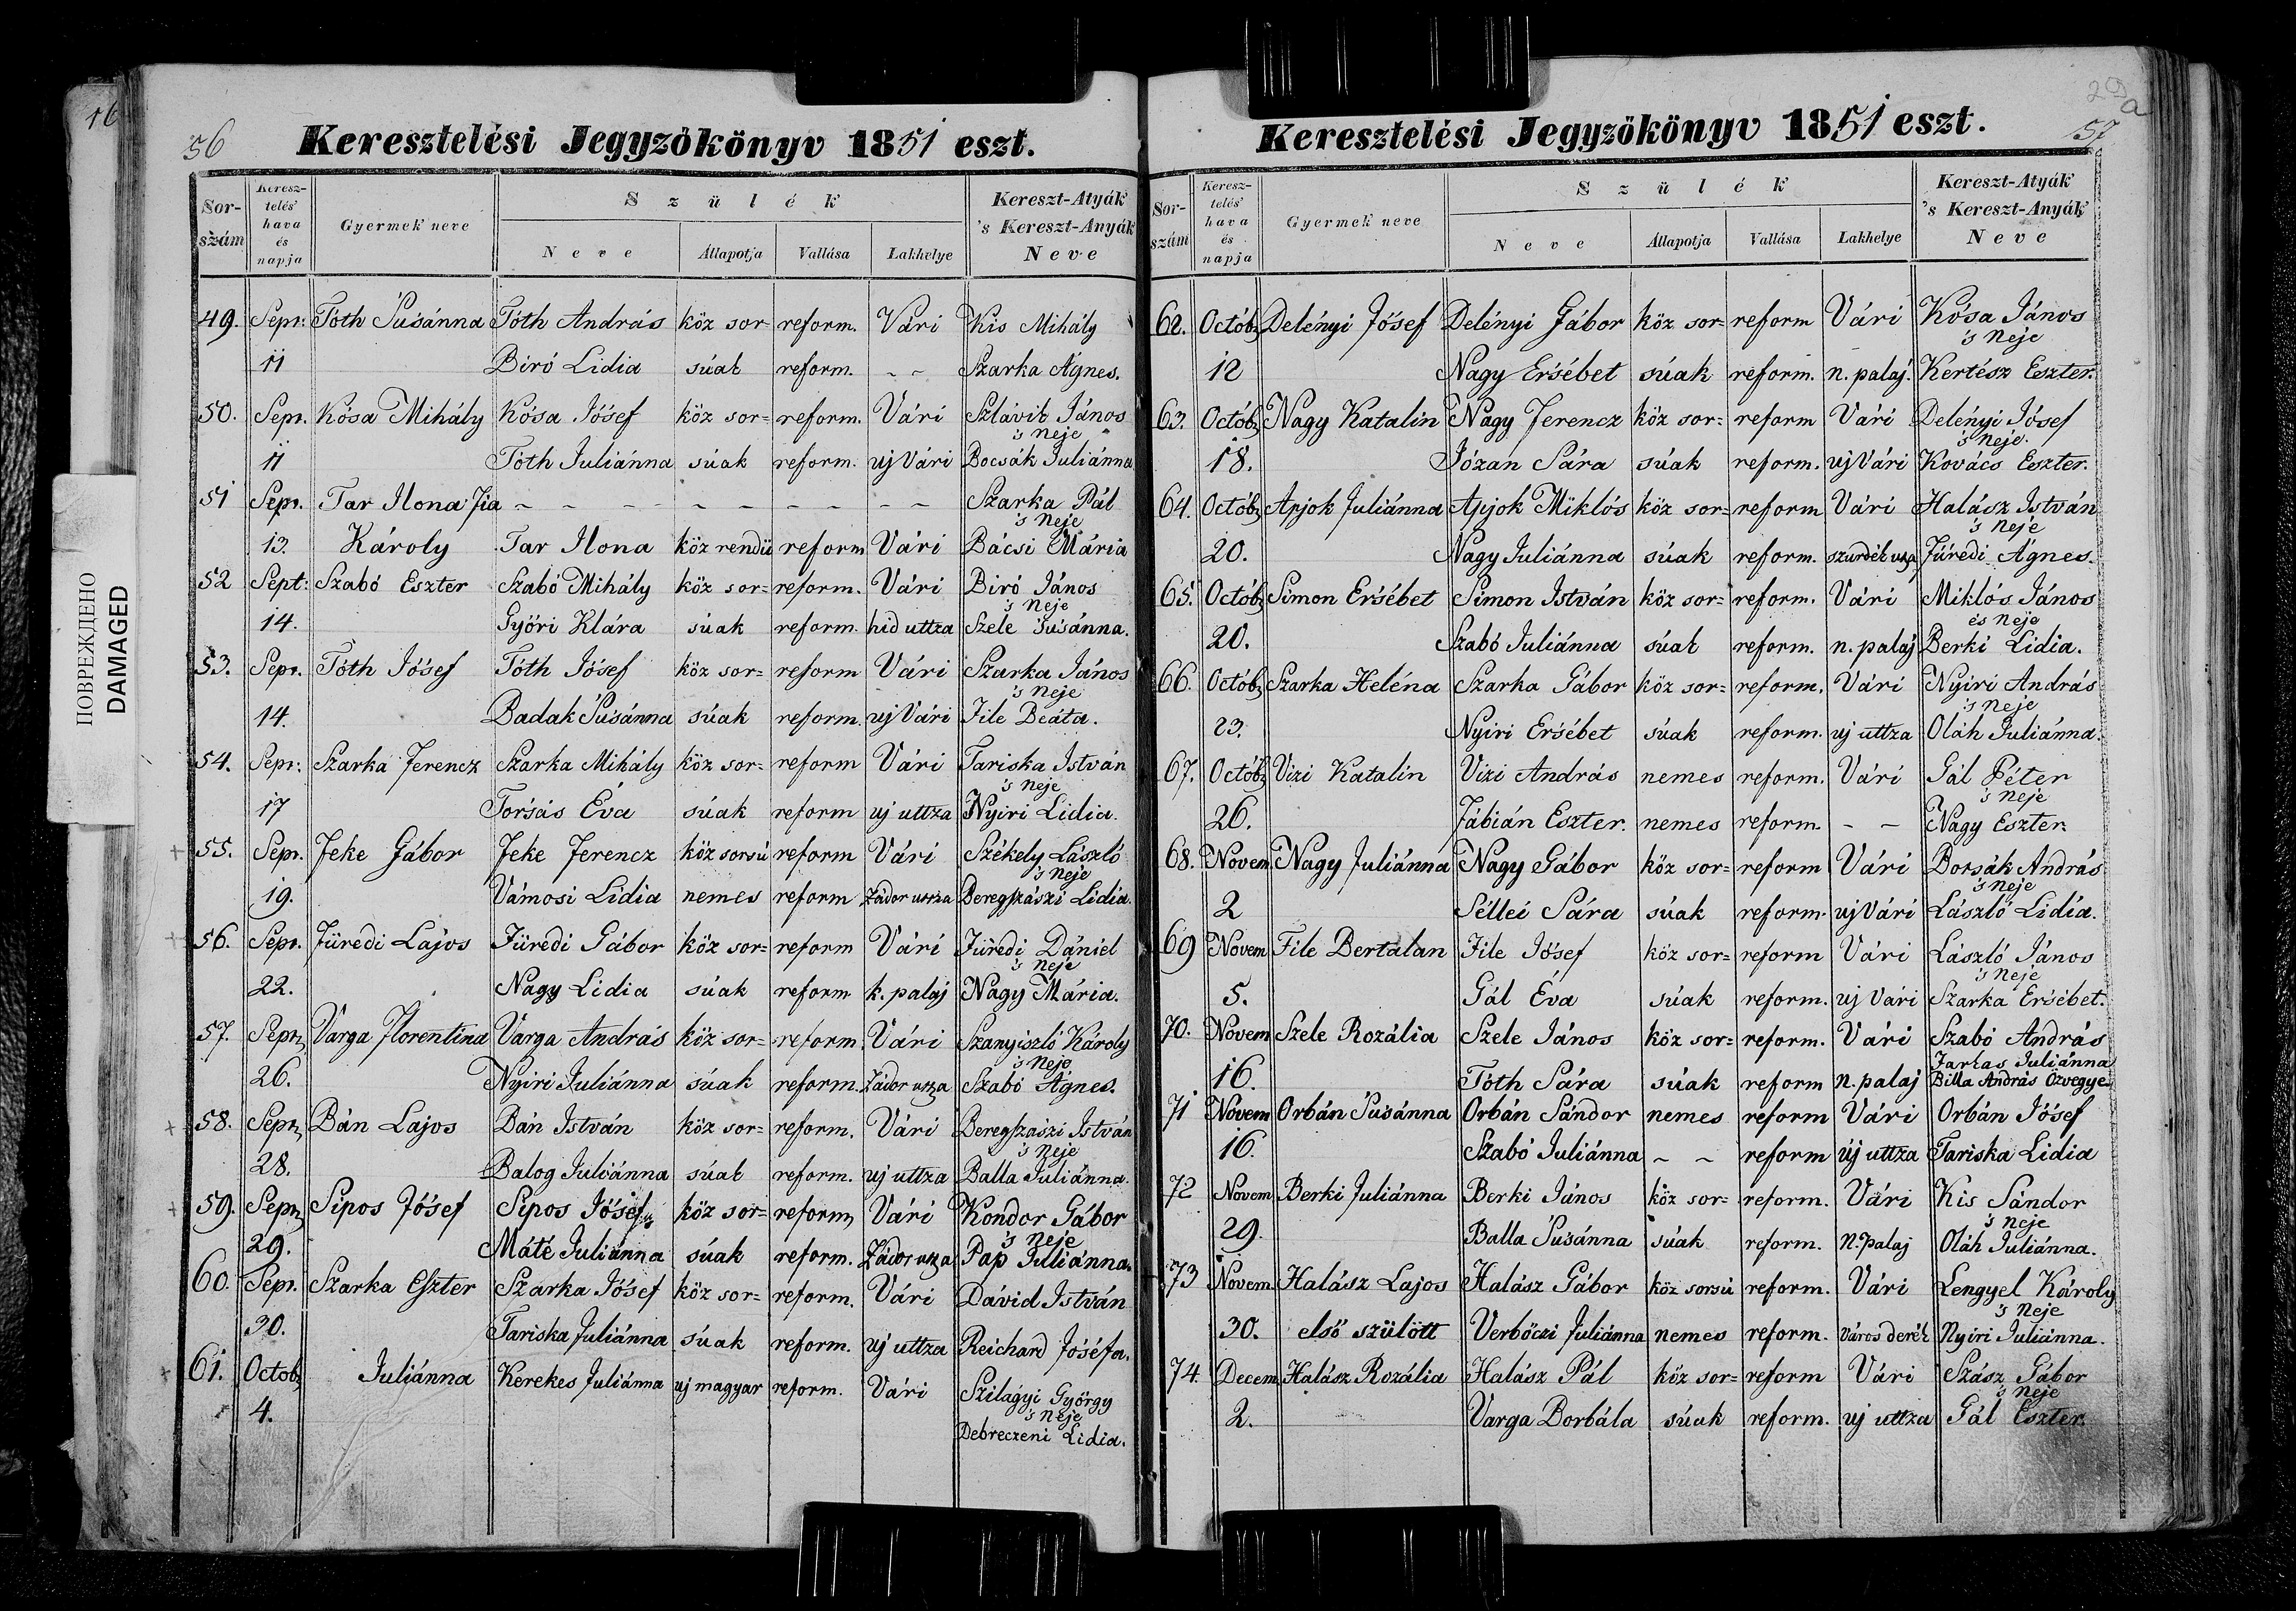 16
ПОВРЕЖДЕНО
DAMAGED
56
Keresztelési Jegyzőkönyv 1851 eszt.
Sor-szám Keresz-telés' hava és napja Gyermek neve Szülék Neve Állapotja Vallása Lakhelye Kereszt-Atyák 's Kereszt-Anyák Neve
49. Sepr: Tóth Susánna Tóth András köz sor- reform. Vári Kis Mihály
11 Biró Lidia súak reform. - - Szarka Ágnes.
50. Sepr. Kósa Mihály Kósa Jósef köz sor= reform. Vári Szlávik János
's Neje
11 Tóth Juliánna súak reform. uj Vári Bocsák Juliánna
51 Sepr. Tar Ilona fia - - - - - - - - - Szarka Pál
's Neje
13. Károly Tar Ilona köz rendü reform Vári Bácsi Mária
52 Sept: Szabó Eszter Szabó Mihály köz sor= reform. Vári Biró János
's Neje
14. Györi Klára súak reform. hid uttza Szele Susánna.
53. Sepr. Tóth Jósef Tóth Jósef köz sor= reform Vári Szarka János
's Neje
14. Badak Susánna súak reform. uj Vári File Beáta.
54. Sepr: Szarka Ferencz Szarka Mihály köz sor= reform Vári Tariska István
's Neje
17 Torsás Éva súak reform uj uttza Nyiri Lidia.
+ 55. Sepr. Feke Gábor Feke Ferencz köz sorsú reform Vári Székely László
's Neje
19. Vámosi Lidia nemes reform Zádor utza Beregszászi Lidia.
+ 56. Sepr. Füredi Lajos Füredi Gábor köz sor= reform Vári Füredi Dániel
's Neje
22. Nagy Lidia súak reform k. palaj Nagy Mária.
57. Sepr, Varga Florentina Varga András köz sor= reform. Vári Szanyiszló Károly
's Neje
26. Nyiri Juliánna súak reform. Zádor utza Szabó Ágnes.
+ 58. Sepr, Bán Lajos Bán István köz sor= reform. Vári Beregszászi István
's Neje
28. Balog Juliánna súak reform. uj uttza Balla Juliánna.
+ 59. Sepr, Sipos Jósef Sipos Jósef köz sor= reform, Vári Kondor Gábor
's Neje
29. Máté Juliánna súak reform. Zádor utza Pap Juliánna.
60. Sepr. Szarka Eszter Szarka Jósef köz sor= reform. Vári Dávid István
30. Tariska Juliánna súak reform. uj uttza Reichard Joséfa.
+ 61. Octob, Juliánna Kerekes Juliánna uj magyar reform. Vári Szilágyi György
's Neje
4. Debreczeni Lidia.
29a
57
Keresztelési Jegyzőkönyv 1851 eszt.
Sor-szám Keresz-telés' hava és napja Gyermek neve Szülék Neve Állapotja Vallása Lakhelye Kereszt-Atyák 's Kereszt-Anyák Neve
62. Octób, Delényi Jósef Delényi Gábor köz sor= reform Vári Kósa János
's Neje
12 Nagy Ersébet súak reform. n. palaj. Kertész Eszter.
63. Octób, Nagy Katalin Nagy Ferencz köz sor= reform Vári Delényi Jósef
's Neje.
18. Józan Sára súak reform. uj Vári Kovács Eszter.
64. Octób, Apjok Juliánna Apjok Miklós köz sor= reform Vári Halász István
's Neje
20. Nagy Juliánna súak reform. szurdék utza Füredi Ágnes.
65. Octób, Simon Ersébet Simon István köz sor= reform. Vári Miklós János
és Neje
20. Szabó Juliánna súak reform. n. palaj Berki Lidia.
66. Octób, Szarka Heléna Szarka Gábor köz sor= reform. Vári Nyiri András
's Neje
23. Nyiri Ersébet súak reform. uj uttza Oláh Juliánna.
67. Octób, Vizi Katalin Vizi András nemes reform. Vári Gál Péter
's Neje
26. Fábián Eszter. nemes reform. - - Nagy Eszter.
68. Novem Nagy Juliánna Nagy Gábor köz sor= reform Vári Borsák András
's Neje
2 Séllei Sára súak reform. uj Vári László Lidia.
69 Novem File Bertalan File Jósef köz sor= reform Vári László János
's Neje
5. Gál Éva súak reform. uj Vári Szarka Ersébet.
70. Novem Szele Rozália Szele János köz sor= reform. Vári Szabó András
Farkas Juliánna
16. Tóth Sára súak reform n. palaj Billa András Özvegye
71 Novem Orbán Susánna Orbán Sándor nemes reform Vári Orbán Jósef
16. Szabó Juliánna - - reform új uttza Tariska Lidia
72 Novem Berki Juliánna Berki János köz sor= reform. Vári Kis Sándor
's Neje
29. Balla Susánna súak reform. N. palaj Oláh Juliánna.
+ 73 Novem Halász Lajos Halász Gábor köz sorsú reform. Vári Lengyel Károly
's Neje
30. első szülött Verböczi Juliánna nemes reform. Város derék Nyiri Juliánna.
74. Decem Halász Rozália Halász Pál köz sor= reform Vári Szász Gábor
's Neje
2. Varga Borbála súak reform. uj uttza Gál Eszter.